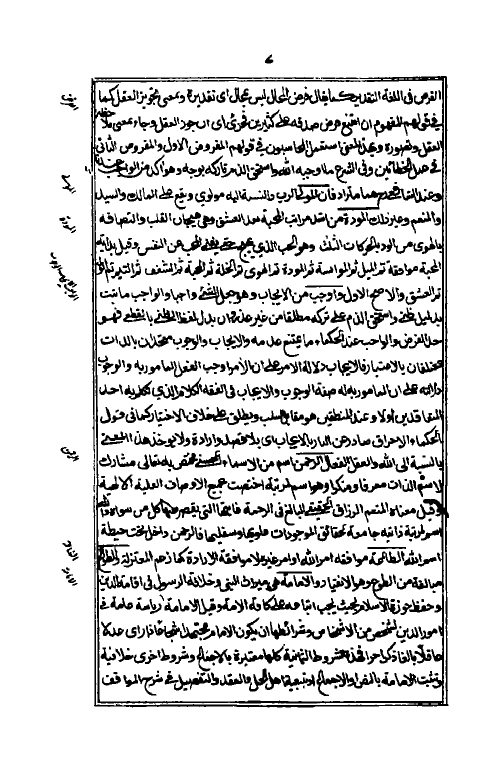 ٧
الفرض في اللغة التقدير كما يقال فرض المحال ليس بمحال اى تقديره وبمعنى تجويز العقل كما
في قولهم المفهوم ان امتنع فرض صدقه على كثيرين فجزئى اى ان جوز العقل وجاء بمعنى ملاحظة
العقل وتصوره وبهذا المعنى استعمل المحاسبون في قولهم المفروض الاول والمفروض الثانى
في عمل الخطائين وفى الشرع ما اوجبه الله واستحق الذم تاركه بوجه وهو آكد من الواجب عندنا
وعند الشافعى هما مترادفان المولى الرب والنسبة اليه مولوى ويقع على المالك والسيد
والمنعم وغير ذلك المودة من اشد مراتب المحبة بعد العشق وهى هيجان القلب والتصاقه
بالهوى من الود بالحركات الثلث وهو الحب الذى يهيج حتى يفنى المحب عن النفس وقيل بداية
المحبة موافقة ثم الميل ثم المواسة ثم المودة ثم الهوى ثم الخلة ثم المحبة ثم الشغف ثم التيم ثم الوله
ثم العشق والاصح الاول واوجب من الايجاب وهو جعل الشئ واجبا والواجب ما ثبت
بدليل ظنى واستحق الذم على تركه مطلقا من غير عذر وان بدل لفظ الظنى بالقطعى فهو
حد الفرض والواجب عند الحكماء ما يمتنع عدمه والايجاب والوجوب متحدان بالذات
مختلفان بالاعتبار فالايجاب دلالة الامر على ان الامر اوجب الفعل المامور به والوجوب
دلالته على ان المامور به له صفة الوجوب والايجاب في الفقه الكلام الذى تكلم به احد
المتعاقدين أولا وعند المنطقيين هو مقابل السلب ويطلق على خلاف الاختيار كما في قول
الحكماء الاحراق صادر عن النار بالايجاب اى بلا قصد وارادة ولا يوخذ هذا المعنى
بالنسبة الى الله والعقل الفعال الرحمن اسم من الاسماء الحسنى مختص به تعالى مشارك
لاسم الذات معرفا ومنكرا وهو اسم لمرتبة اختصت جميع الاوصاف العلية الالهية
وقيل معناه المنعم الرزاق الحقيقى البالغ في الرحمة غايتها التى يقصر عنها كل من سواه والله
اسم لمرتبة ذاتية جامعة لحقائق الموجودات علويها وسفليها فالرحمن داخل تحت حيطة
اسم الله الطاعة موافقة امر الله او امر غيره لا موافقة الارادة كما زعم المعتزلة والمطواع
مبالغة من الطوع وهو الانقياد والامامة هى ميراث النبى وخلافة الرسول في اقامة الدين
وحفظ حوزة الاسلام بحيث يجب اتباعه على كافة الامة وقيل الامامة رياسة عامة في
امور الدين لشخص من الاشخاص وشرائطها ان يكون الامام مجتهدا شجاعا ذا راى عدلا
عاقلا بالغا ذكرا حرا فهذه الشروط الثمانية كلها معتبرة بالاجماع وشروط اخرى خلافية
وتثبت الامامة بالنص او الاجماع او ببيعة اهل الحل والعقد والتفصيل في شرح المواقف
الفرض
المولى
المودة
الرحمن
الطاعة
الامامة